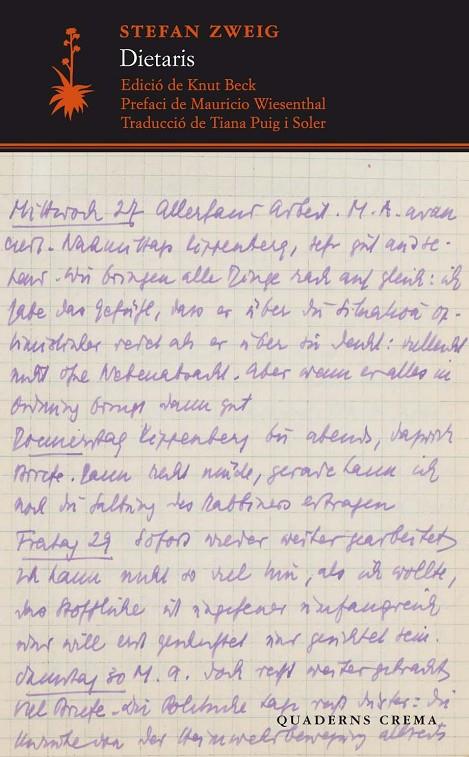 STEFAN ZWEIG
Dietaris
Edició de Knut Beck
Prefaci de Mauricio Wiesenthal
Traducció de Tiana Puig i Soler
Mittwoch 27 Allerhand Arbeit. M. A. avan
ciert. Nachmittags Kippenberg, sehr gut andau-
ernd. Wir bringen alle Dinge rasch auf gleich: ich
habe das Gefühl, dass er über die Situation op-
timistischer redet als er über sie denkt: vielleicht
nicht ohne Nebenabsicht. Aber wenn er alles in
Ordnung bringt dann gut
Donnerstag Kippenberg bis abends, dazwisch
Briefe. Dann recht müde, gerade kann ich
noch die des Rabbiners ertragen
Freitag 29 Sofort wieder weiter gearbeitet
Ich kann nicht so viel hin, als ich wollte,
das Stoffliche ist ungeheuer umfangreich
und will erst gesichtet sein.
Samstag 30 M. A. doch recht weiter gebracht
viel Briefe. Die Politische Lage recht düster: die
der Heimwehrbewegung
QUADERNS CREMA